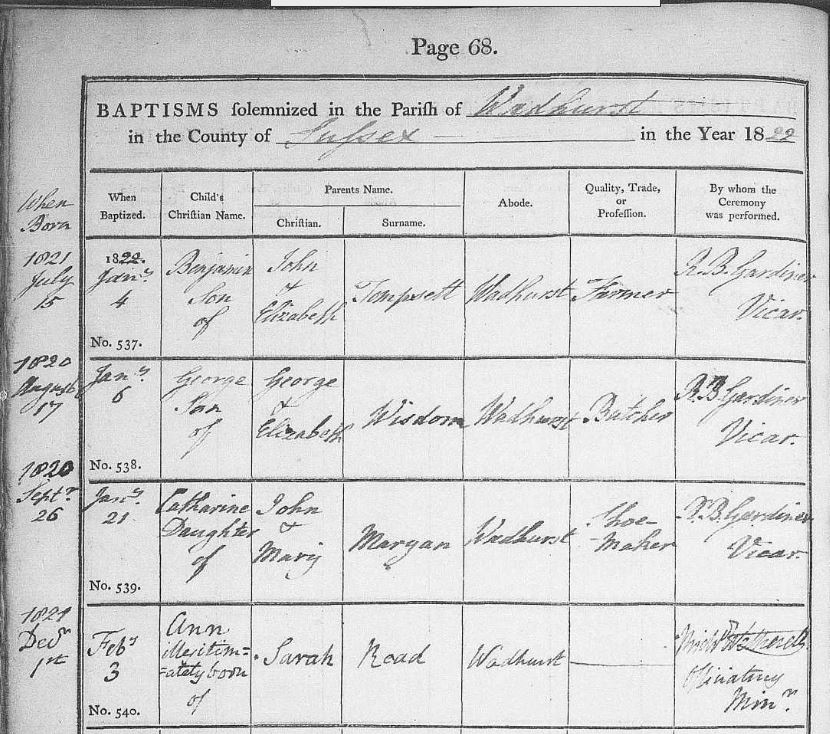 Page 68.
BAPTISMS solemnized in the Parish of Wadhurst
in the County of Sussex in the Year 1822
When Born
When Baptized.
Child's Christian Name.
Parents Name.
Christian.
Surname.
Abode.
Quality, Trade, or Profession.
By whom the Ceremony was performed.
1821
July
15
1822.
Jany
4
No. 537.
Benjamin
Son
of
John
&
Elizabeth
Tompsett
Wadhurst
Farmer
R. B. Gardiner
Vicar.
1820
August
17
Jany
6
No. 538.
George
Son
of
George
&
Elizabeth
Wisdom
Wadhurst
Butcher
R. B. Gardiner
Vicar.
1820
Septr
26
Jany
21
No. 539.
Catharine
Daughter
of
John
&
Mary
Morgan
Wadhurst
Shoe-
Maker
R. B. Gardiner
Vicar.
1821
Decr
1st
Feby
3
No. 540.
Ann
illegitim=
=ately born
of
Sarah
Road
Wadhurst
Officiating
Minr.